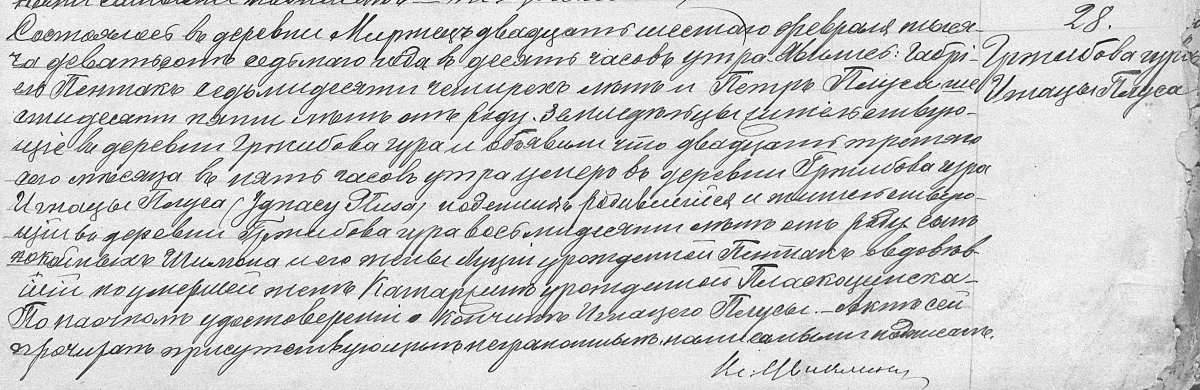 28.
Гржибова гура
Игнацы Плуса
Состоялось въ деревни Миржецъ двадцать шестаго февраля тыся-
ча девятьсотъ седьмаго года въ десять часовъ утра. Явились: Габрі-
ель Пентакъ седьмидесяти четырехъ лѣтъ и Петръ Плуса ше
стидесяти пяти лѣтъ отъ роду, земледѣльцы жительствую-
щіе въ деревни Гржибова гура и объявили что двадцать третяго
сего мѣсяца въ пять часовъ утра умеръ въ деревни Гржибова гура
Игнацы Плуса (Ignacy Plusa) поденщикъ родившійся и жительствую-
щій въ деревни Гржибова гура восьмидесяти лѣтъ отъ роду, сынъ
покойныхъ Шимона и его жены Луціи урожденной Пентакъ овдовѣв-
шій по умершей женѣ Катаржинѣ урожденной Пласкоцинска-
По наочномъ удостовереніи о кончинѣ Игнацего Плусы. - Актъ сей
прочитанъ присутствующимъ неграмотнымъ нами самыми подписанъ.
Кс.